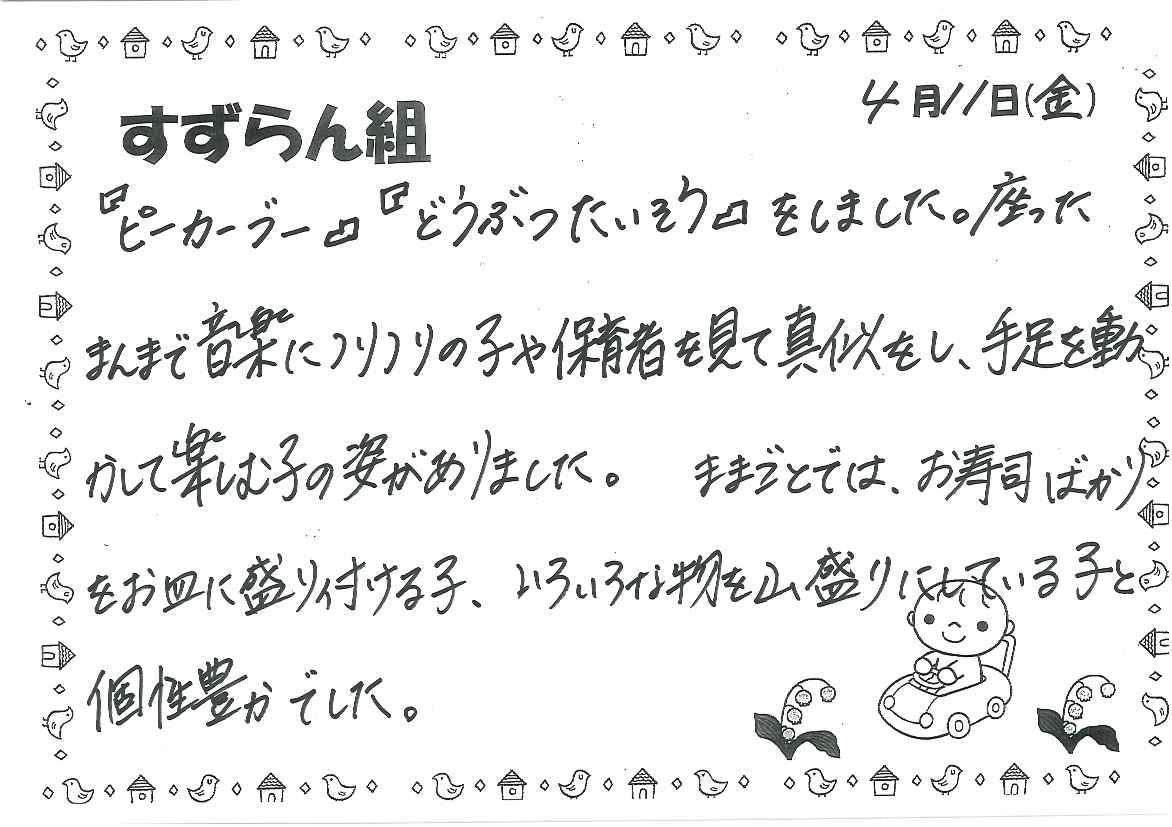 すずらん組
4月11日(金)
『ピーカーブー』『どうぶつたいそう』をしました。座った
まんまで音楽にノリノリの子や保育者を見て真似をし、手足を動
かして楽しむ子の姿がありました。 ままごとでは、お寿司ばかり
をお皿に盛り付ける子、いろいろな物を山盛りにしている子と
個性豊かでした。